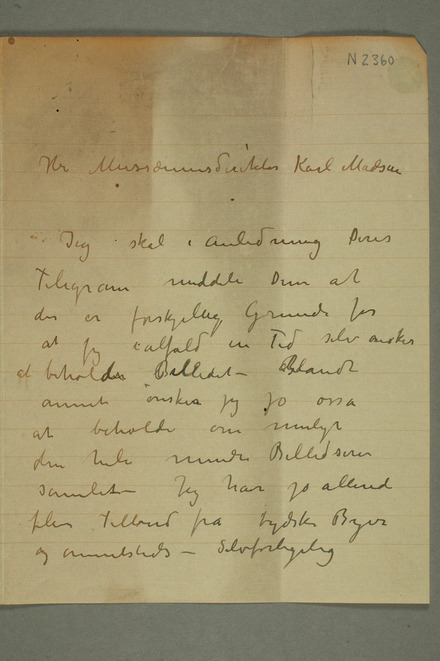 N 2360
Hr Musæumsdirektør Karl Madsen
Jeg skal i Anledning Deres
Telegram meddele Dem at
der er forskjellig Grunde for
at jeg ialfald en Tid selv ønsker
at beholde Billedet – Blandt
annet ønsker jeg jo osså
at beholde om muligt
den hele mindre Billedserie
samlet – Jeg har jo allerede
flere Tilbud fra tydske Byer
og annetsteds – Selvfølgelig